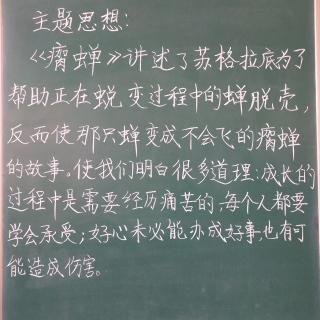 主题思想:
《瘸蝉》讲述了苏格拉底为了
帮助正在蜕变过程中的蝉脱壳,
反而使那只蝉变成不会飞的瘸蝉
的故事。使我们明白很多道理:成长的
过程中是需要经历痛苦的,每个人都要
学会承受;好心未必能办成好事,也有可
能造成伤害。